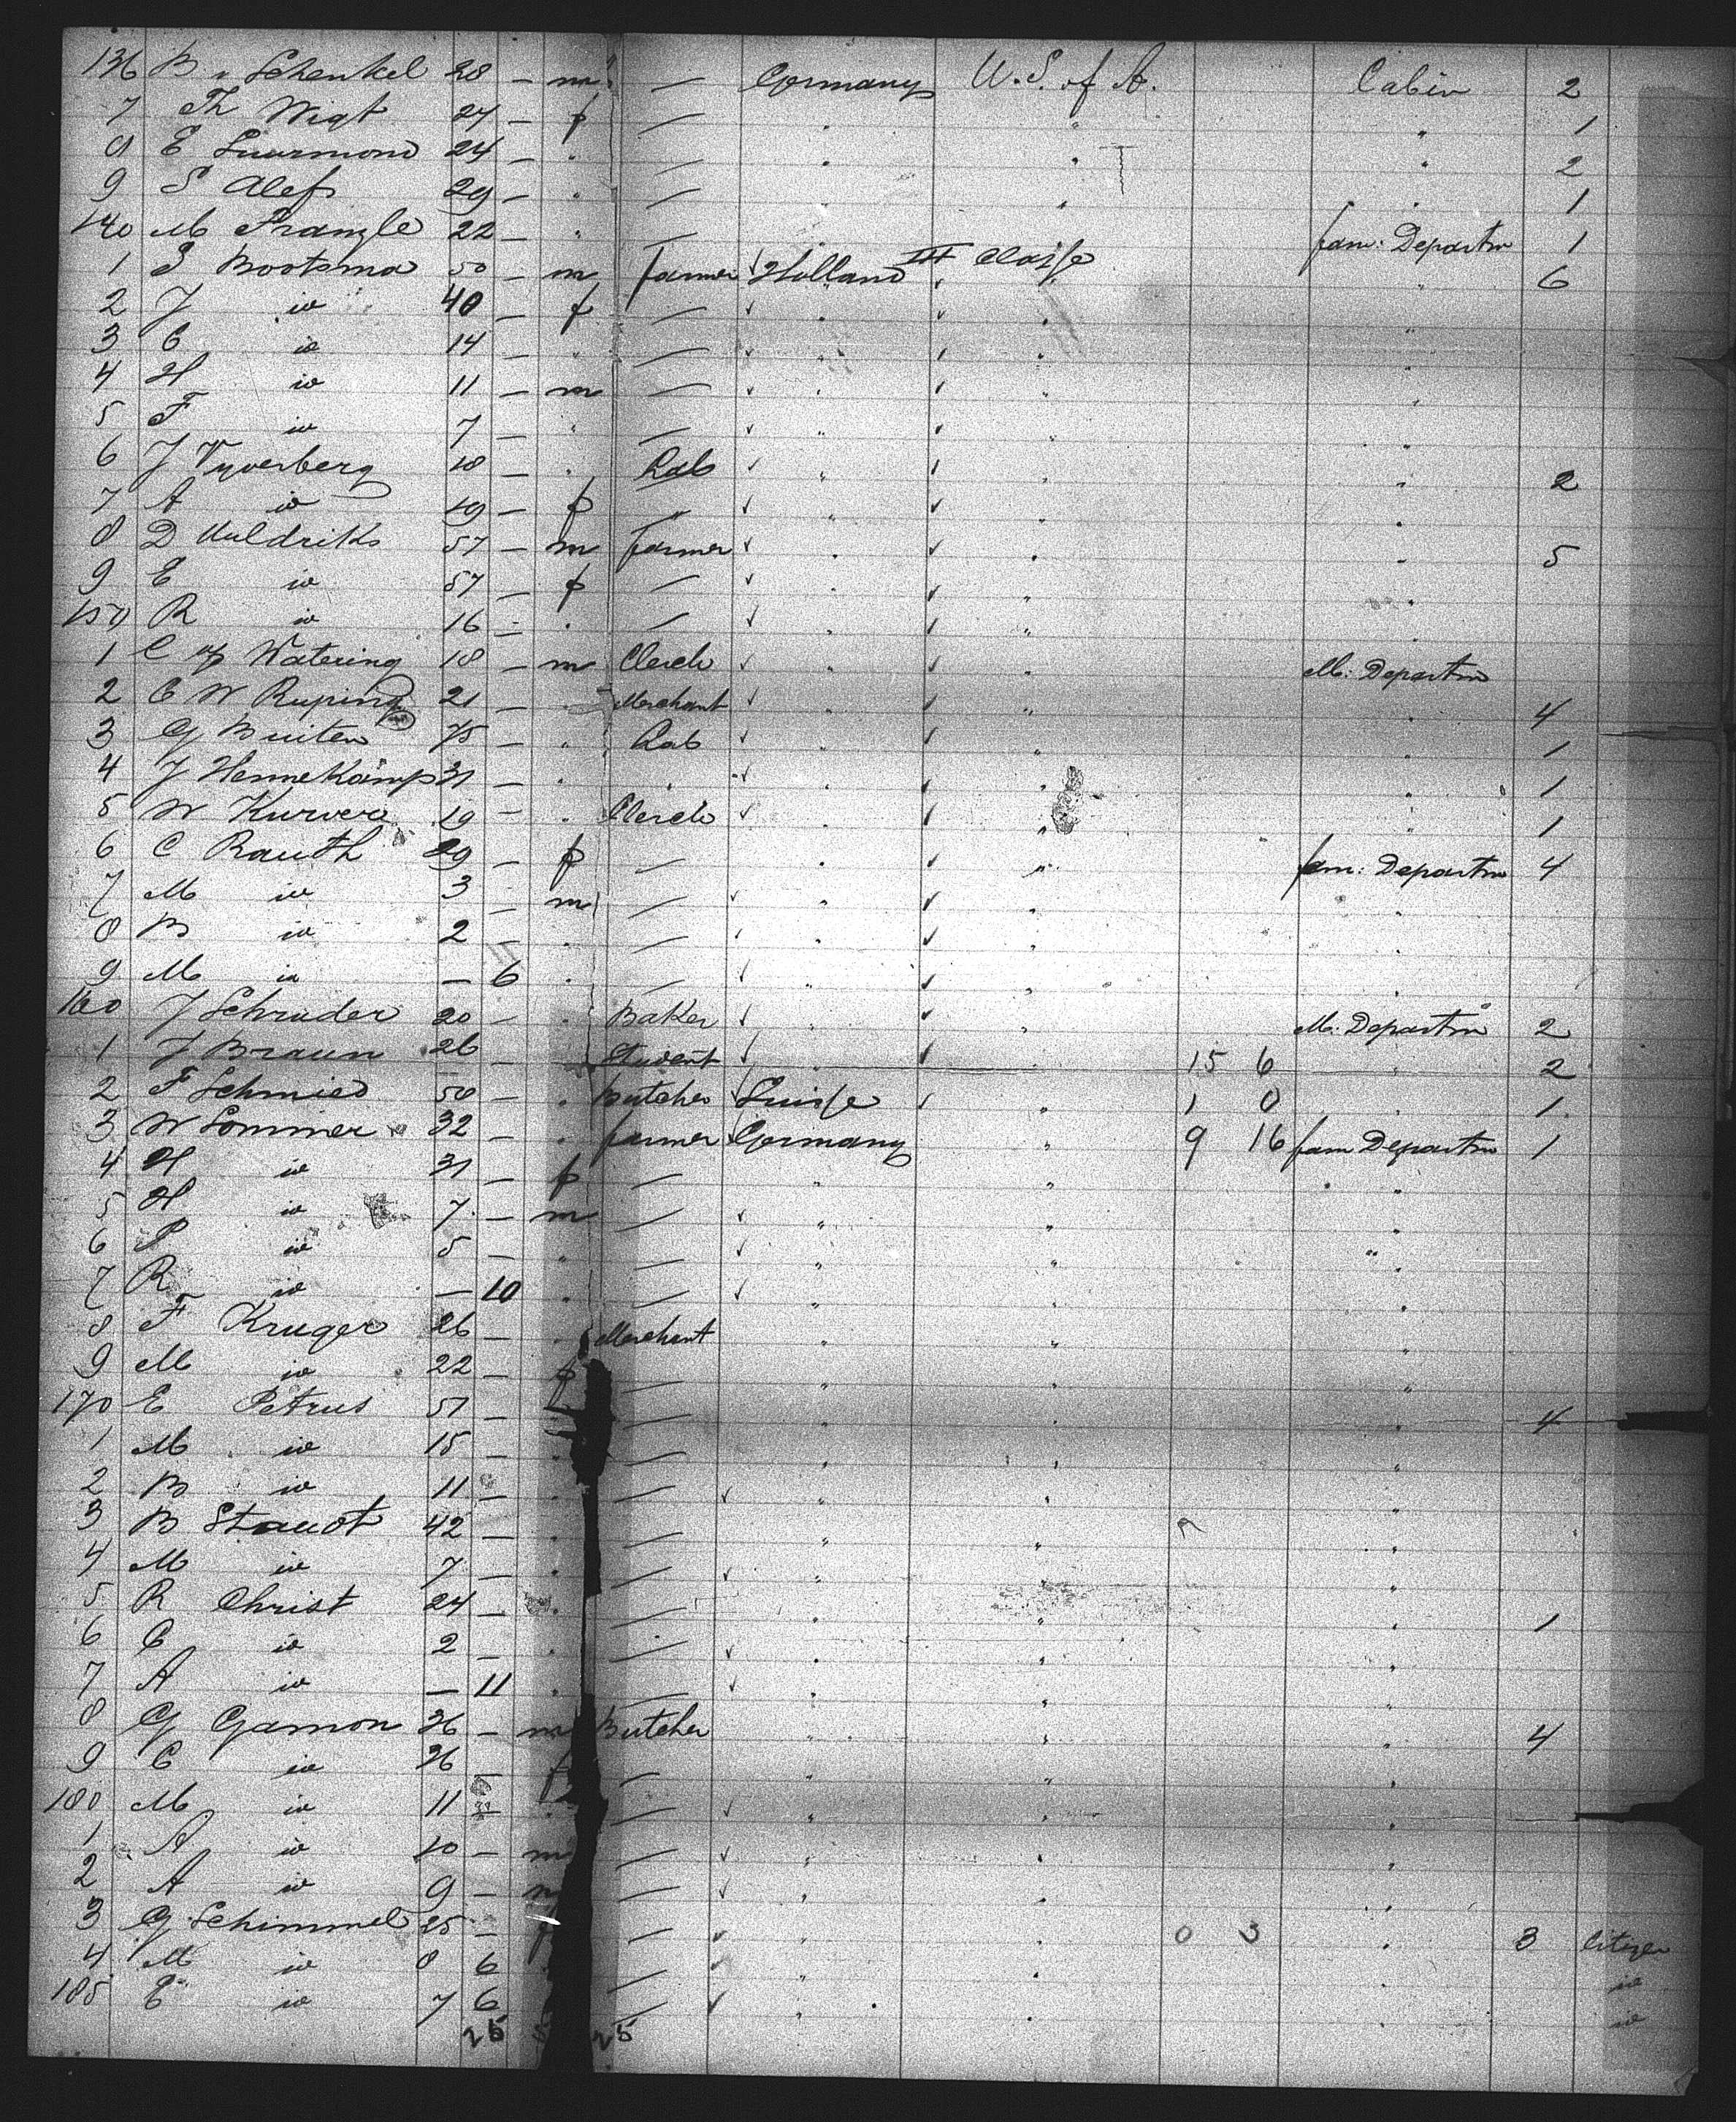 136 B v Schenkel 28 — m — Germany U. S. of A. Cabin 2
7 Th Wigt 24 — f — " " " 1
8 E Suurmond 24 — " — " " " 2
9 S Alef 29 — " — " " " 1
140 M Frangle 22 — " — fam: Departm 1
III Classe
1 S Bootsma 50 — m farmer Holland " " 6
2 J io 40 — f — " " "
3 C io 14 — " — " " "
4 H io 11 — m — " " "
5 F io 7 — " — " " "
6 J Vyverberg 18 — " Lab " " " 2
7 A io 19 — f " " " "
8 D Muldriks 57 — m farmer " " " 5
9 E io 57 — f — " " "
150 R io 16 — " — " " "
1 C op Watering 18 — m Clerck " " M: Departm
2 C W Ruping 21 — " Merchant " " " 4
3 G Buiten 75 — " Lab " " " 1
4 J Hennekamp 31 — " " " " " 1
5 W Kurver 19 — " Clerck " " " 1
6 C Rauth 29 — f — " " fam: Departm 4
7 M io 3 — m — " " "
8 B io 2 — " — " " "
9 M io — 6 " — " " "
160 J Schrader 20 — " Baker " " M: Departm 2
1 J Braun 26 — " Student " " 15 6 " 2
2 F Schmied 50 — " Butcher Suisse " 1 0 " 1
3 W Sommer 32 — " farmer Germany " 9 16 fam Departm 1
4 H io 31 — f — " " "
5 H io 7 — m — " "
6 P io 5 — " — " " "
7 R io — 10 " — " " "
8 F Kruger 26 — " Merchant " " "
9 M io 22 — f — " " "
170 E Petrus 51 — " — " " " 4
1 M io 15 — " — " " "
2 B io 11 — " — " " "
3 B Staudt 42 — " — " " "
4 M io 7 — " — " " "
5 R Christ 24 — " — " " " 1
6 C io 2 — " — " " "
7 A io — 11 " — " " "
8 G Gamon 36 — m Butcher " " " 4
9 C io 36 — f — " " "
180 M io 11 — " — " " "
1 A io 10 — m — " " "
2 A io 9 — m — " " "
3 G Schimmel 25 — f — " " 0 3 " 3 Citizen
4 M io 8 6 " — " " " io
185 E io 7 6 " — " " " io
25 25